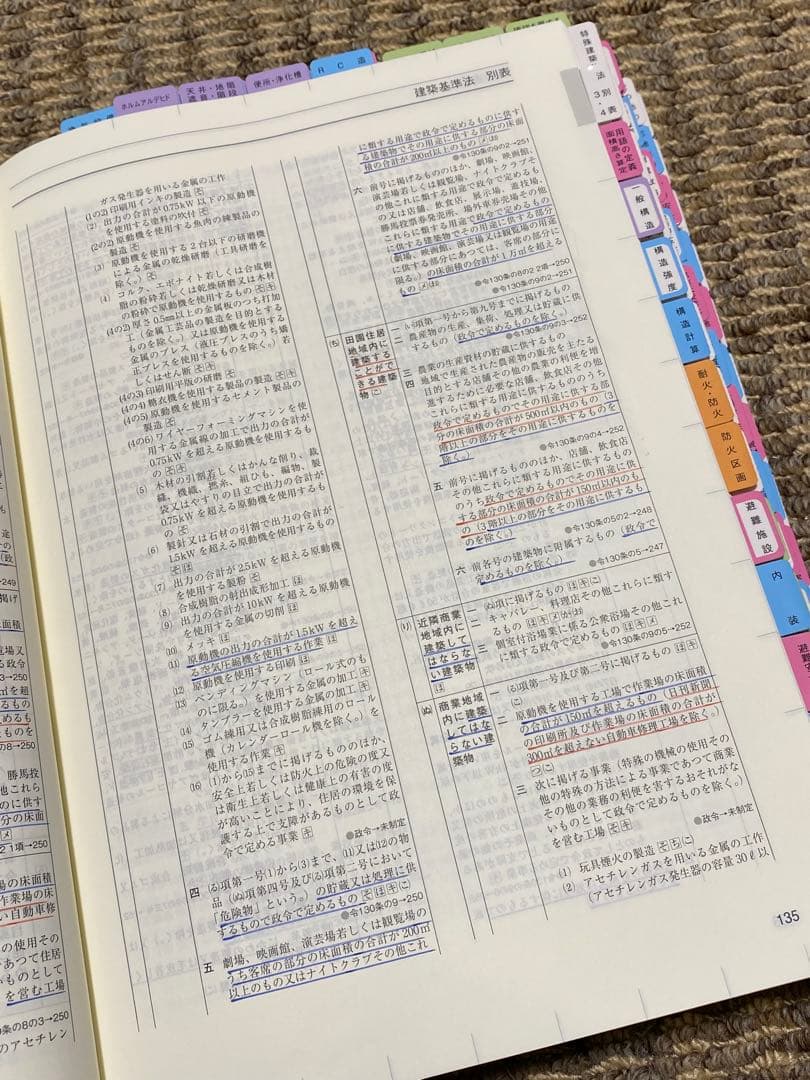 ホルムアルデヒド
天井・地階
遮音・階段
便所・浄化槽
RC造
建築基準法 別表
特殊建築
法別表
3・4
用語の定義
面積高さ算定
一般構造
構造強度
構造計算
耐火・防火
防火区画
避難施設
内装
ガス発生器を用いる金属の工作
(1の2) 印刷用インキの製造 そ
(2) 出力の合計が0.75kW以下の原動機
を使用する塗料の吹付 そ
(2の2) 原動機を使用する魚肉の練製品の
製造 そ
(3) 原動機を使用する2台以下の研磨機
による金属の乾燥研磨(工具研磨を
除く。) そ キ
(4) コルク、エボナイト若しくは合成樹
脂の粉砕若しくは乾燥研磨又は木材
の粉砕で原動機を使用するもの そ キ
(4の2) 厚さ0.5mm以上の金属板のつち打加
工(金属工芸品の製造を目的とする
ものを除く。)又は原動機を使用する
金属のプレス(液圧プレスのうち矯
正プレスを使用するものを除く。)若
しくはせん断 そ キ
(4の3) 印刷用平版の研磨 そ
(4の4) 糖衣機を使用する製品の製造 そ キ
(4の5) 原動機を使用するセメント製品の
製造 そ
(4の6) ワイヤーフォーミングマシンを使
用する金属線の加工で出力の合計が
0.75kWを超える原動機を使用するも
の そ キ
(5) 木材の引割若しくはかんな削り、裁
縫、機織、撚糸、組ひも、編物、製
袋又はやすりの目立で出力の合計が
0.75kWを超える原動機を使用するも
の そ
(6) 製針又は石材の引割で出力の合計が
1.5kWを超える原動機を使用するもの
そ キ
(7) 出力の合計が2.5kWを超える原動機
を使用する製粉 そ
(8) 合成樹脂の射出成形加工 は
(9) 出力の合計が10kWを超える原動機
を使用する金属の切削 は
(10) メッキ は
(11) 原動機の出力の合計が1.5kWを超え
る空気圧縮機を使用する作業 は
(12) 原動機を使用する印刷 は
(13) ベンディングマシン(ロール式のも
のに限る。)を使用する金属の加工 キ
(14) タンブラーを使用する金属の加工 キ
(15) ゴム練用又は合成樹脂練用のロール
機(カレンダーロール機を除く。)を
使用する作業 キ
(16) (1)から(15)までに掲げるもののほか、
安全上若しくは防火上の危険の度又
は衛生上若しくは健康上の有害の度
が高いことにより、住居の環境を保
護する上で支障があるものとして政
令で定める事業 そ キ
●政令→未制定
四 (る)項第一号(1)から(3)まで、(11)又は(12)の物
品((ぬ)項第四号及び(る)項第二号において
「危険物」という。)の貯蔵又は処理に供
するもので政令で定めるもの そ ほ キ こ
●令130条の9→250
五 劇場、映画館、演芸場若しくは観覧場の
うち客席の部分の床面積の合計が200㎡
以上のもの又はナイトクラブその他これ
に類する用途で政令で定めるものに供す
る建築物でその用途に供する部分の床面
積の合計が200㎡以上のもの
●令130条の9の2→251
六 前号に掲げるもののほか、劇場、映画館、
演芸場若しくは観覧場、ナイトクラブそ
の他これに類する用途で政令で定めるも
の又は店舗、飲食店、展示場、遊技場、
勝馬投票券発売所、場外車券売場その他
これらに類する用途で政令で定めるもの
に供する建築物でその用途に供する部分
(劇場、映画館、演芸場又は観覧場の用途
に供する部分にあっては、客席の部分に
限る。)の床面積の合計が1万㎡を超える
もの
●令130条の8の2 2項→250
●令130条の9の2→251
(ち) 田園住居
地域内に
建築する
ことがで
きる建築
物 こ
一 (い)項第一号から第九号までに掲げるもの
二 農産物の生産、集荷、処理又は貯蔵に供
するもの(政令で定めるものを除く。)
●令130条の9の3→252
三 農業の生産資材の貯蔵に供するもの
四 地域で生産された農産物の販売を主たる
目的とする店舗その他の農業の利便を増
進するために必要な店舗、飲食店その他
これらに類する用途に供するもののうち
政令で定めるものでその用途に供する部
分の床面積の合計が500㎡以内のもの(3
階以上の部分をその用途に供するものを
除く。)
●令130条の9の4→252
五 前号に掲げるもののほか、店舗、飲食店
その他これらに類する用途に供するもの
のうち政令で定めるものでその用途に供
する部分の床面積の合計が150㎡以内のも
の(3階以上の部分をその用途に供するも
のを除く。)
●令130条の5の2→248
六 前各号の建築物に附属するもの(政令で
定めるものを除く。)
●令130条の5→247
(り) 近隣商業
地域内に
建築して
はならな
い建築物
は
一 (ぬ)項に掲げるもの ほ キ こ
二 キャバレー、料理店その他これらに類す
るもの
三 個室付浴場業に係る公衆浴場その他これ
に類する政令で定めるもの
●令130条の9の5→252
(ぬ) 商業地域
内に建築
してはな
らない建
築物
一 (る)項第一号及び第二号に掲げるもの ほ キ
こ
二 原動機を使用する工場で作業場の床面積
の合計が150㎡を超えるもの(日刊新聞
の印刷所及び作業場の床面積の合計が
300㎡を超えない自動車修理工場を除く。)
つ こ
三 次に掲げる事業(特殊の機械の使用その
他の特殊の方法による事業であつて商業
その他の業務の利便を害するおそれがな
いものとして政令で定めるものを除く。)
を営む工場 そ キ
●政令→未制定
(1) 玩具煙火の製造 そ ち こ
(2) アセチレンガスを用いる金属の工作
(アセチレンガス発生器の容量30ℓ以
135